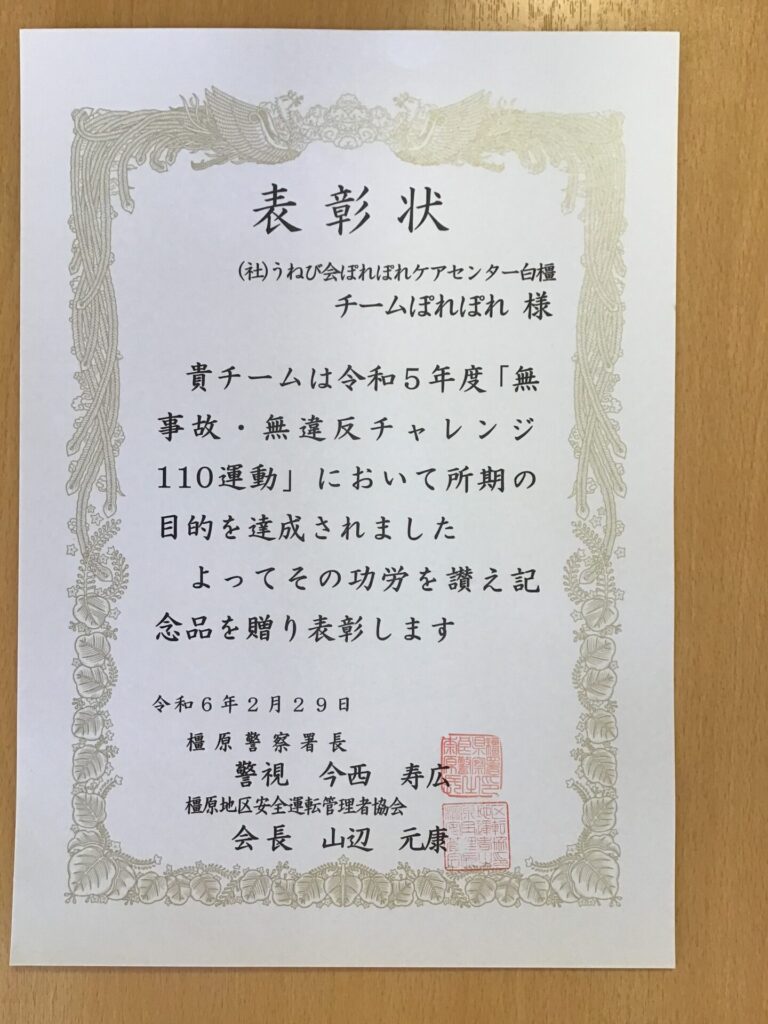 表彰状
(社)うねび会ぽれぽれケアセンター白橿
チームぽれぽれ 様
貴チームは令和５年度「無
事故・無違反チャレンジ
110運動」において所期の
目的を達成されました
よってその功労を讃え記
念品を贈り表彰します
令和６年２月２９日
橿原警察署長
警視 今西 寿広
橿原地区安全運転管理者協会
会長 山辺 元康